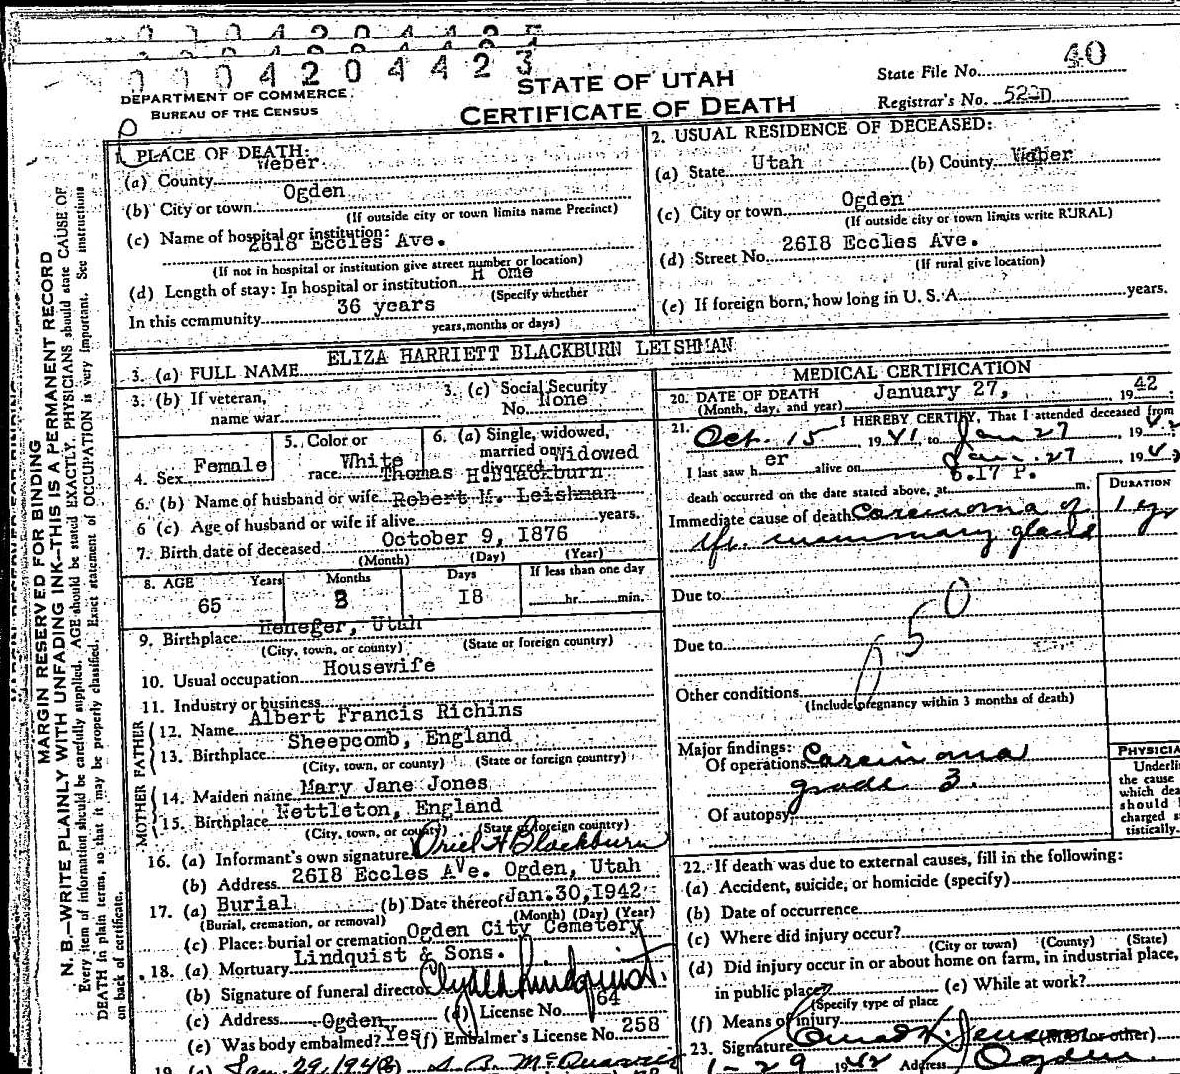 0 0 0 4 2 0 4 4 2 3
STATE OF UTAH
CERTIFICATE OF DEATH
DEPARTMENT OF COMMERCE
BUREAU OF THE CENSUS
State File No. 40
Registrar's No. D
MARGIN RESERVED FOR BINDING
N. B.—WRITE PLAINLY WITH UNFADING INK—THIS IS A PERMANENT RECORD
Every item of information should be carefully supplied. AGE should be stated EXACTLY. PHYSICIANS should state CAUSE OF
DEATH in plain terms, so that it may be properly classified. Exact statement of OCCUPATION is very important. See instructions
on back of certificate.
1. PLACE OF DEATH:
(a) County Weber
(b) City or town Ogden
(If outside city or town limits name Precinct)
(c) Name of hospital or institution:
2618 Eccles Ave.
(If not in hospital or institution give street number or location)
(d) Length of stay: In hospital or institution H ome
(Specify whether
In this community 36 years
years, months or days)
2. USUAL RESIDENCE OF DECEASED:
(a) State Utah (b) County Weber
(c) City or town Ogden
(If outside city or town limits write RURAL)
(d) Street No. 2618 Eccles Ave.
(If rural give location)
(e) If foreign born, how long in U. S. A. years.
3. (a) FULL NAME ELIZA HARRIETT BLACKBURN LEISHMAN
3. (b) If veteran,
name war
3. (c) Social Security
No. None
4. Sex Female
5. Color or
race White
6. (a) Single, widowed,
married or
divorced Widowed
Thomas H. Blackburn
6. (b) Name of husband or wife Robert M. Leishman
6 (c) Age of husband or wife if alive years.
7. Birth date of deceased October 9, 1876
(Month) (Day) (Year)
8. AGE Years Months Days If less than one day
65 3 18 hr. min.
9. Birthplace Heneger, Utah
(City, town, or county) (State or foreign country)
10. Usual occupation Housewife
11. Industry or business
FATHER
12. Name Albert Francis Richins
13. Birthplace Sheepcomb, England
(City, town, or county) (State or foreign country)
MOTHER
14. Maiden name Mary Jane Jones
15. Birthplace Nettleton, England
(City, town, or county) (State or foreign country)
16. (a) Informant's own signature Oriel H Blackburn
(b) Address 2618 Eccles Ave. Ogden, Utah
17. (a) Burial (b) Date thereof Jan.30,1942
(Burial, cremation, or removal) (Month) (Day) (Year)
(c) Place: burial or cremation Ogden City Cemetery
18. (a) Mortuary Lindquist & Sons.
(b) Signature of funeral director Clyde Lindquist.
(c) Address Ogden (d) License No. 64
(e) Was body embalmed? Yes (f) Embalmer's License No. 258
19. (a) Jan. 29, 1942 (b)
MEDICAL CERTIFICATION
20. DATE OF DEATH January 27, 1942
(Month, day, and year)
21. I HEREBY CERTIFY, That I attended deceased from
Oct. 15, 1941 to Jan 27, 194
I last saw her alive on Jan. 27 194
death occurred on the date stated above, at 6.17 P. m.
DURATION
Immediate cause of death Carcinoma of 1 yr
lft. mammary gland
Due to
050
Due to
Other conditions
(Include pregnancy within 3 months of death)
Major findings:
Of operations Carcinoma
grade 3.
Of autopsy
PHYSICIA
Underli
the cause
which dea
should
charged s
tistically.
22. If death was due to external causes, fill in the following:
(a) Accident, suicide, or homicide (specify)
(b) Date of occurrence
(c) Where did injury occur?
(City or town) (County) (State)
(d) Did injury occur in or about home on farm, in industrial place,
in public place? (e) While at work?
(Specify type of place
(f) Means of injury
23. Signature (M.D. or other)
1-29 1942 Address Ogden